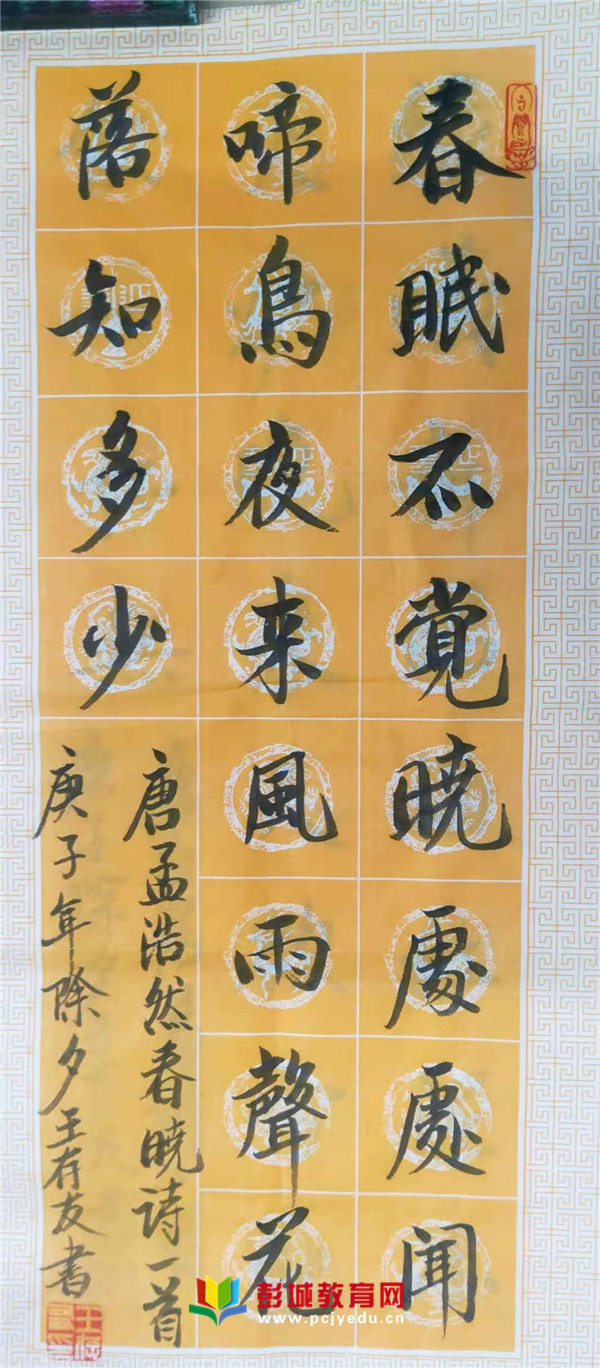 春眠不覺曉處處聞
啼鳥夜来風雨聲花
落知多少
唐孟浩然春曉诗一首
庚子年除夕王存友書
彭城教育网
www.pcjyedu.cn